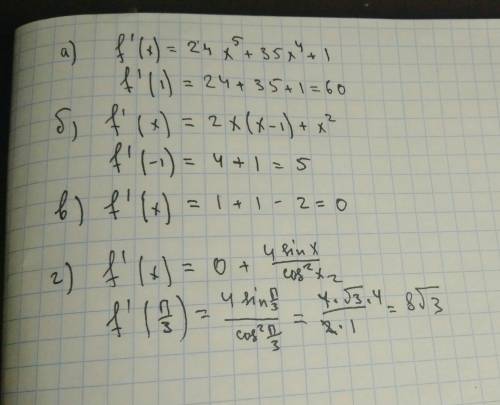 а) f'(x) = 24x⁵ + 35x⁴ + 1
f'(1) = 24 + 35 + 1 = 60
б) f'(x) = 2x(x-1) + x²
f'(-1) = 4 + 1 = 5
в) f'(x) = 1 + 1 - 2 = 0
г) f'(x) = 0 + 4 sin x / cos² x
f'(π/3) = 4 sin π/3 / cos² π/3 = 4·√3·4 / 2·1 = 8√3